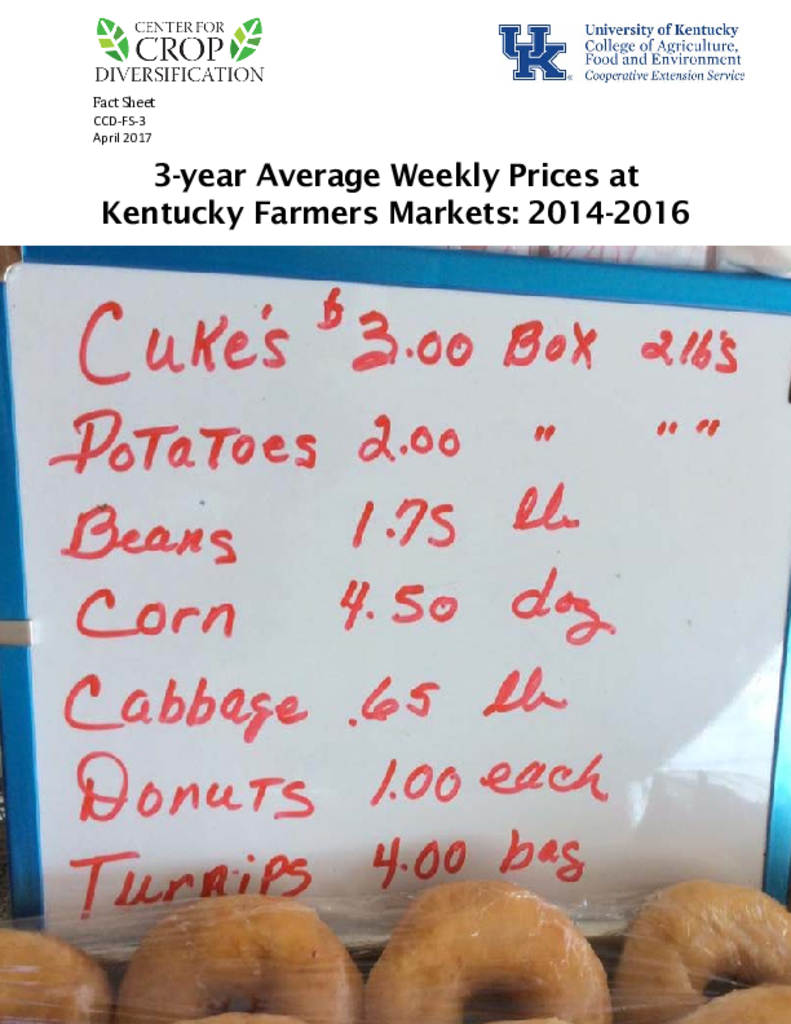 CENTER FOR
CROP
DIVERSIFICATION
University of Kentucky
College of Agriculture,
Food and Environment
Cooperative Extension Service
Fact Sheet
CCD-FS-3
April 2017
3-year Average Weekly Prices at
Kentucky Farmers Markets: 2014-2016
Cuke's $3.00 Box 2 lb's
Potatoes 2.00 " " "
Beans 1.75 lb
Corn 4.50 doz
Cabbage .65 lb
Donuts 1.00 each
Turnips 4.00 bag